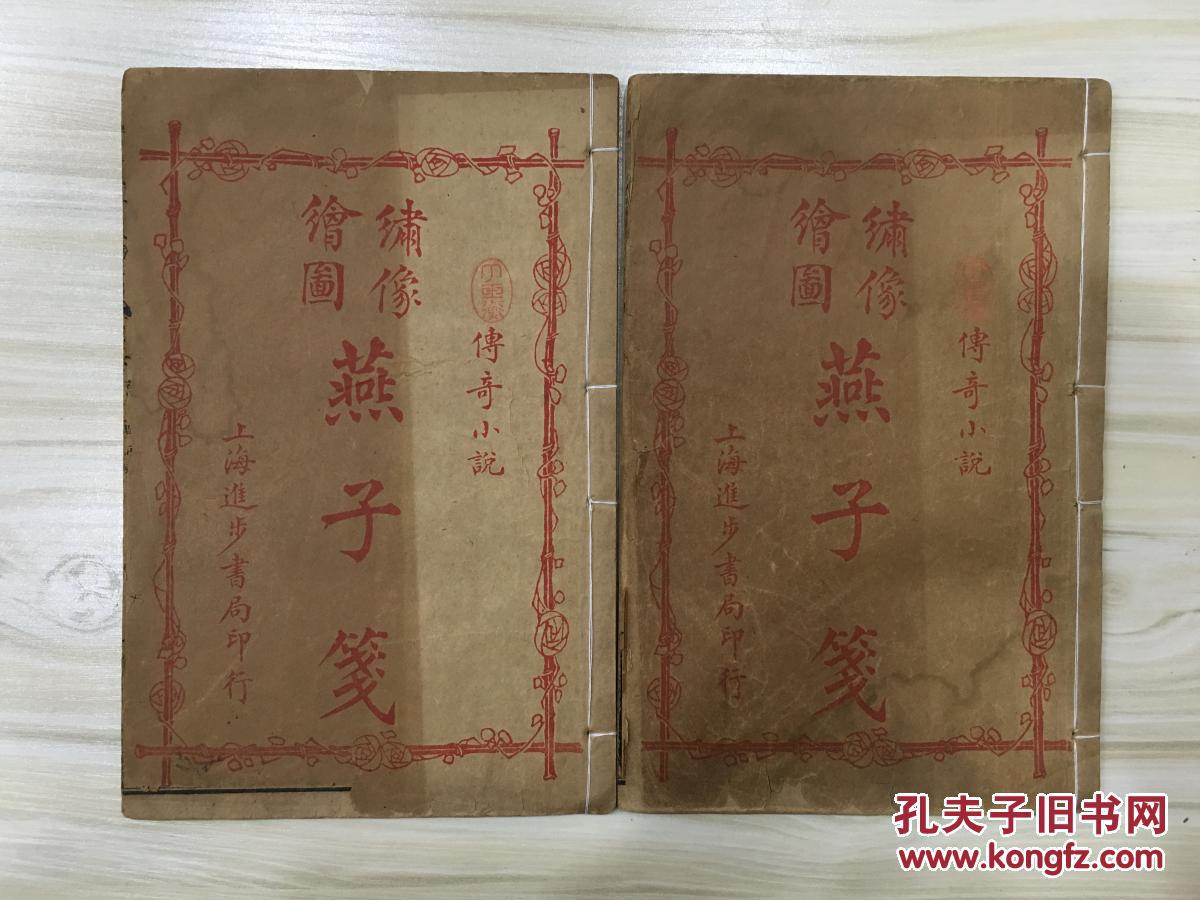 繡像
繪圖
燕子箋
傳奇小說
上海進步書局印行
繡像
繪圖
燕子箋
傳奇小說
上海進步書局印行
孔夫子旧书网
www.kongfz.com